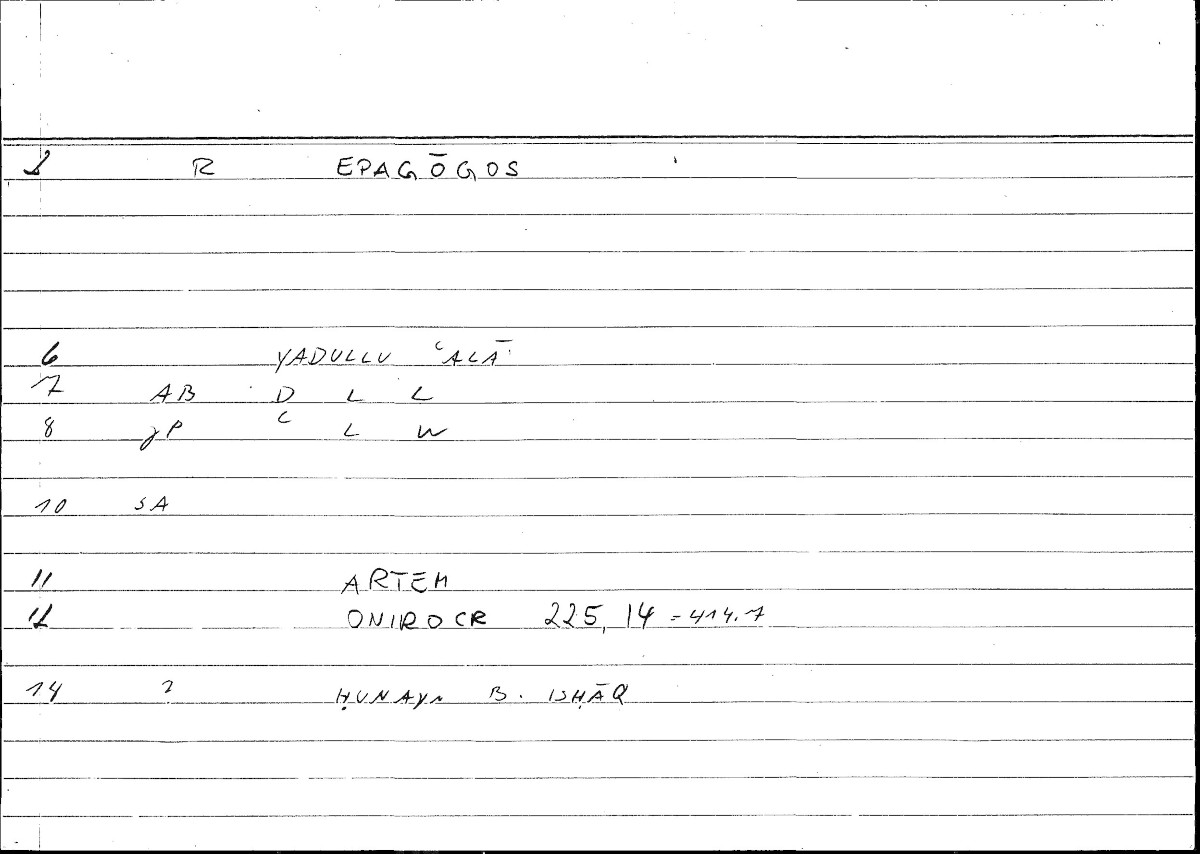 1 R EPAGŌGOS
6 YADULLU ʿALĀ
7 AB D L L
8 JP ʿ L W
10 SA
11 ARTEM
12 ONIROCR 225,14 = 414.7
14 2 ḤUNAYN B. ISḤĀQ